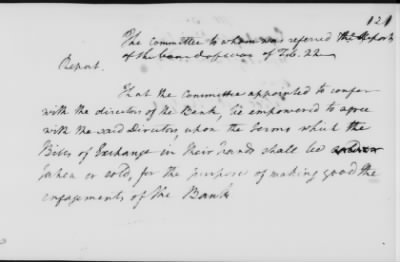 121
The Committee to whom was referred the Report
of the board of war of Feb. 22
Report.
That the Committee appointed to confer
with the directors of the Bank, be empowered to agree
with the said Directors, upon the terms which the
Bills of Exchange in their hands shall be
taken or sold, for the purpose of making good the
engagements of the Bank